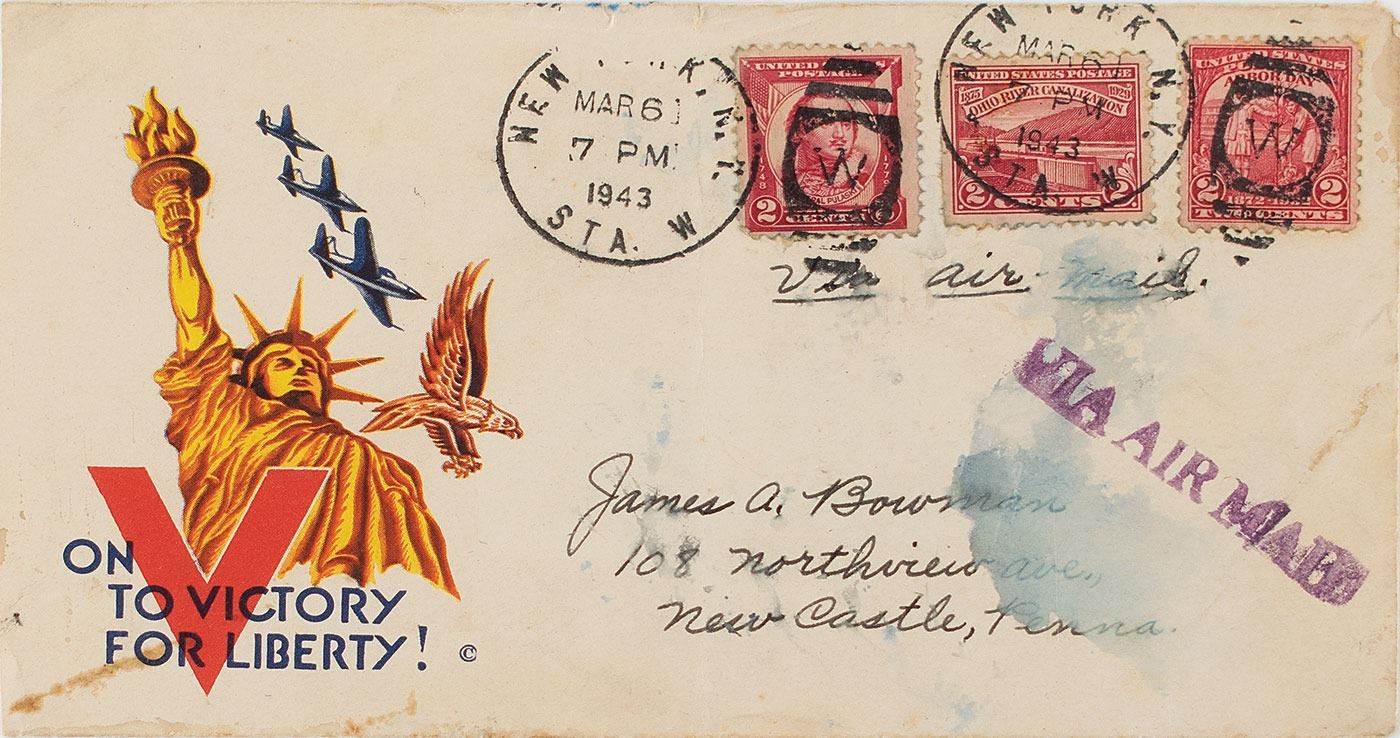 NEW YORK, N.Y.
MAR 6
7 PM
1943
STA. W
UNITED STATES
POSTAGE
1748
1779
GENERAL PULASKI
2 2
W
NEW YORK N.Y.
MAR 6
PM
1943
STA. W
UNITED STATES POSTAGE
1875 1929
OHIO RIVER CANALIZATION
2 CENTS 2
UNITED STATES
ARBOR DAY
W
1872
2 TWO CENTS 2
Via air mail.
VIA AIR MAIL
James A. Bowman
108 Northview ave.,
New Castle, Penna.
ON
TO VICTORY
FOR LIBERTY! ©